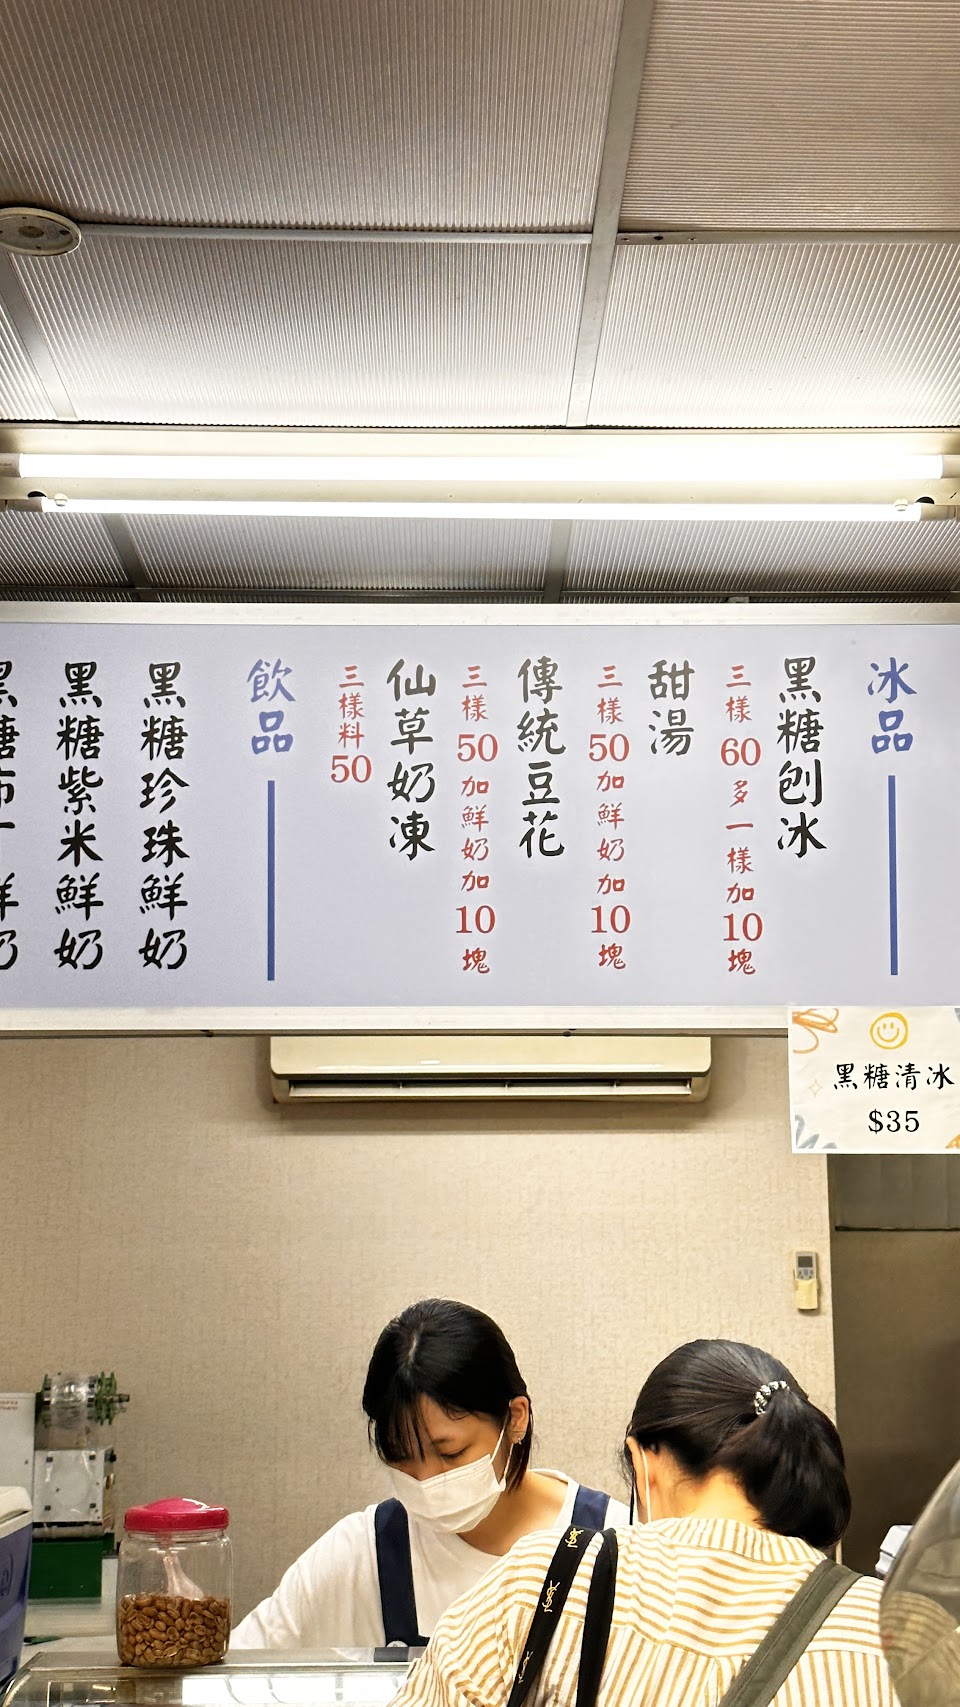 冰品
黑糖刨冰
三樣60多一樣加10塊
甜湯
三樣50加鮮奶加10塊
傳統豆花
三樣50加鮮奶加10塊
仙草奶凍
三樣料50
飲品
黑糖珍珠鮮奶
黑糖紫米鮮奶
黑糖布丁鮮奶
黑糖清冰
$35